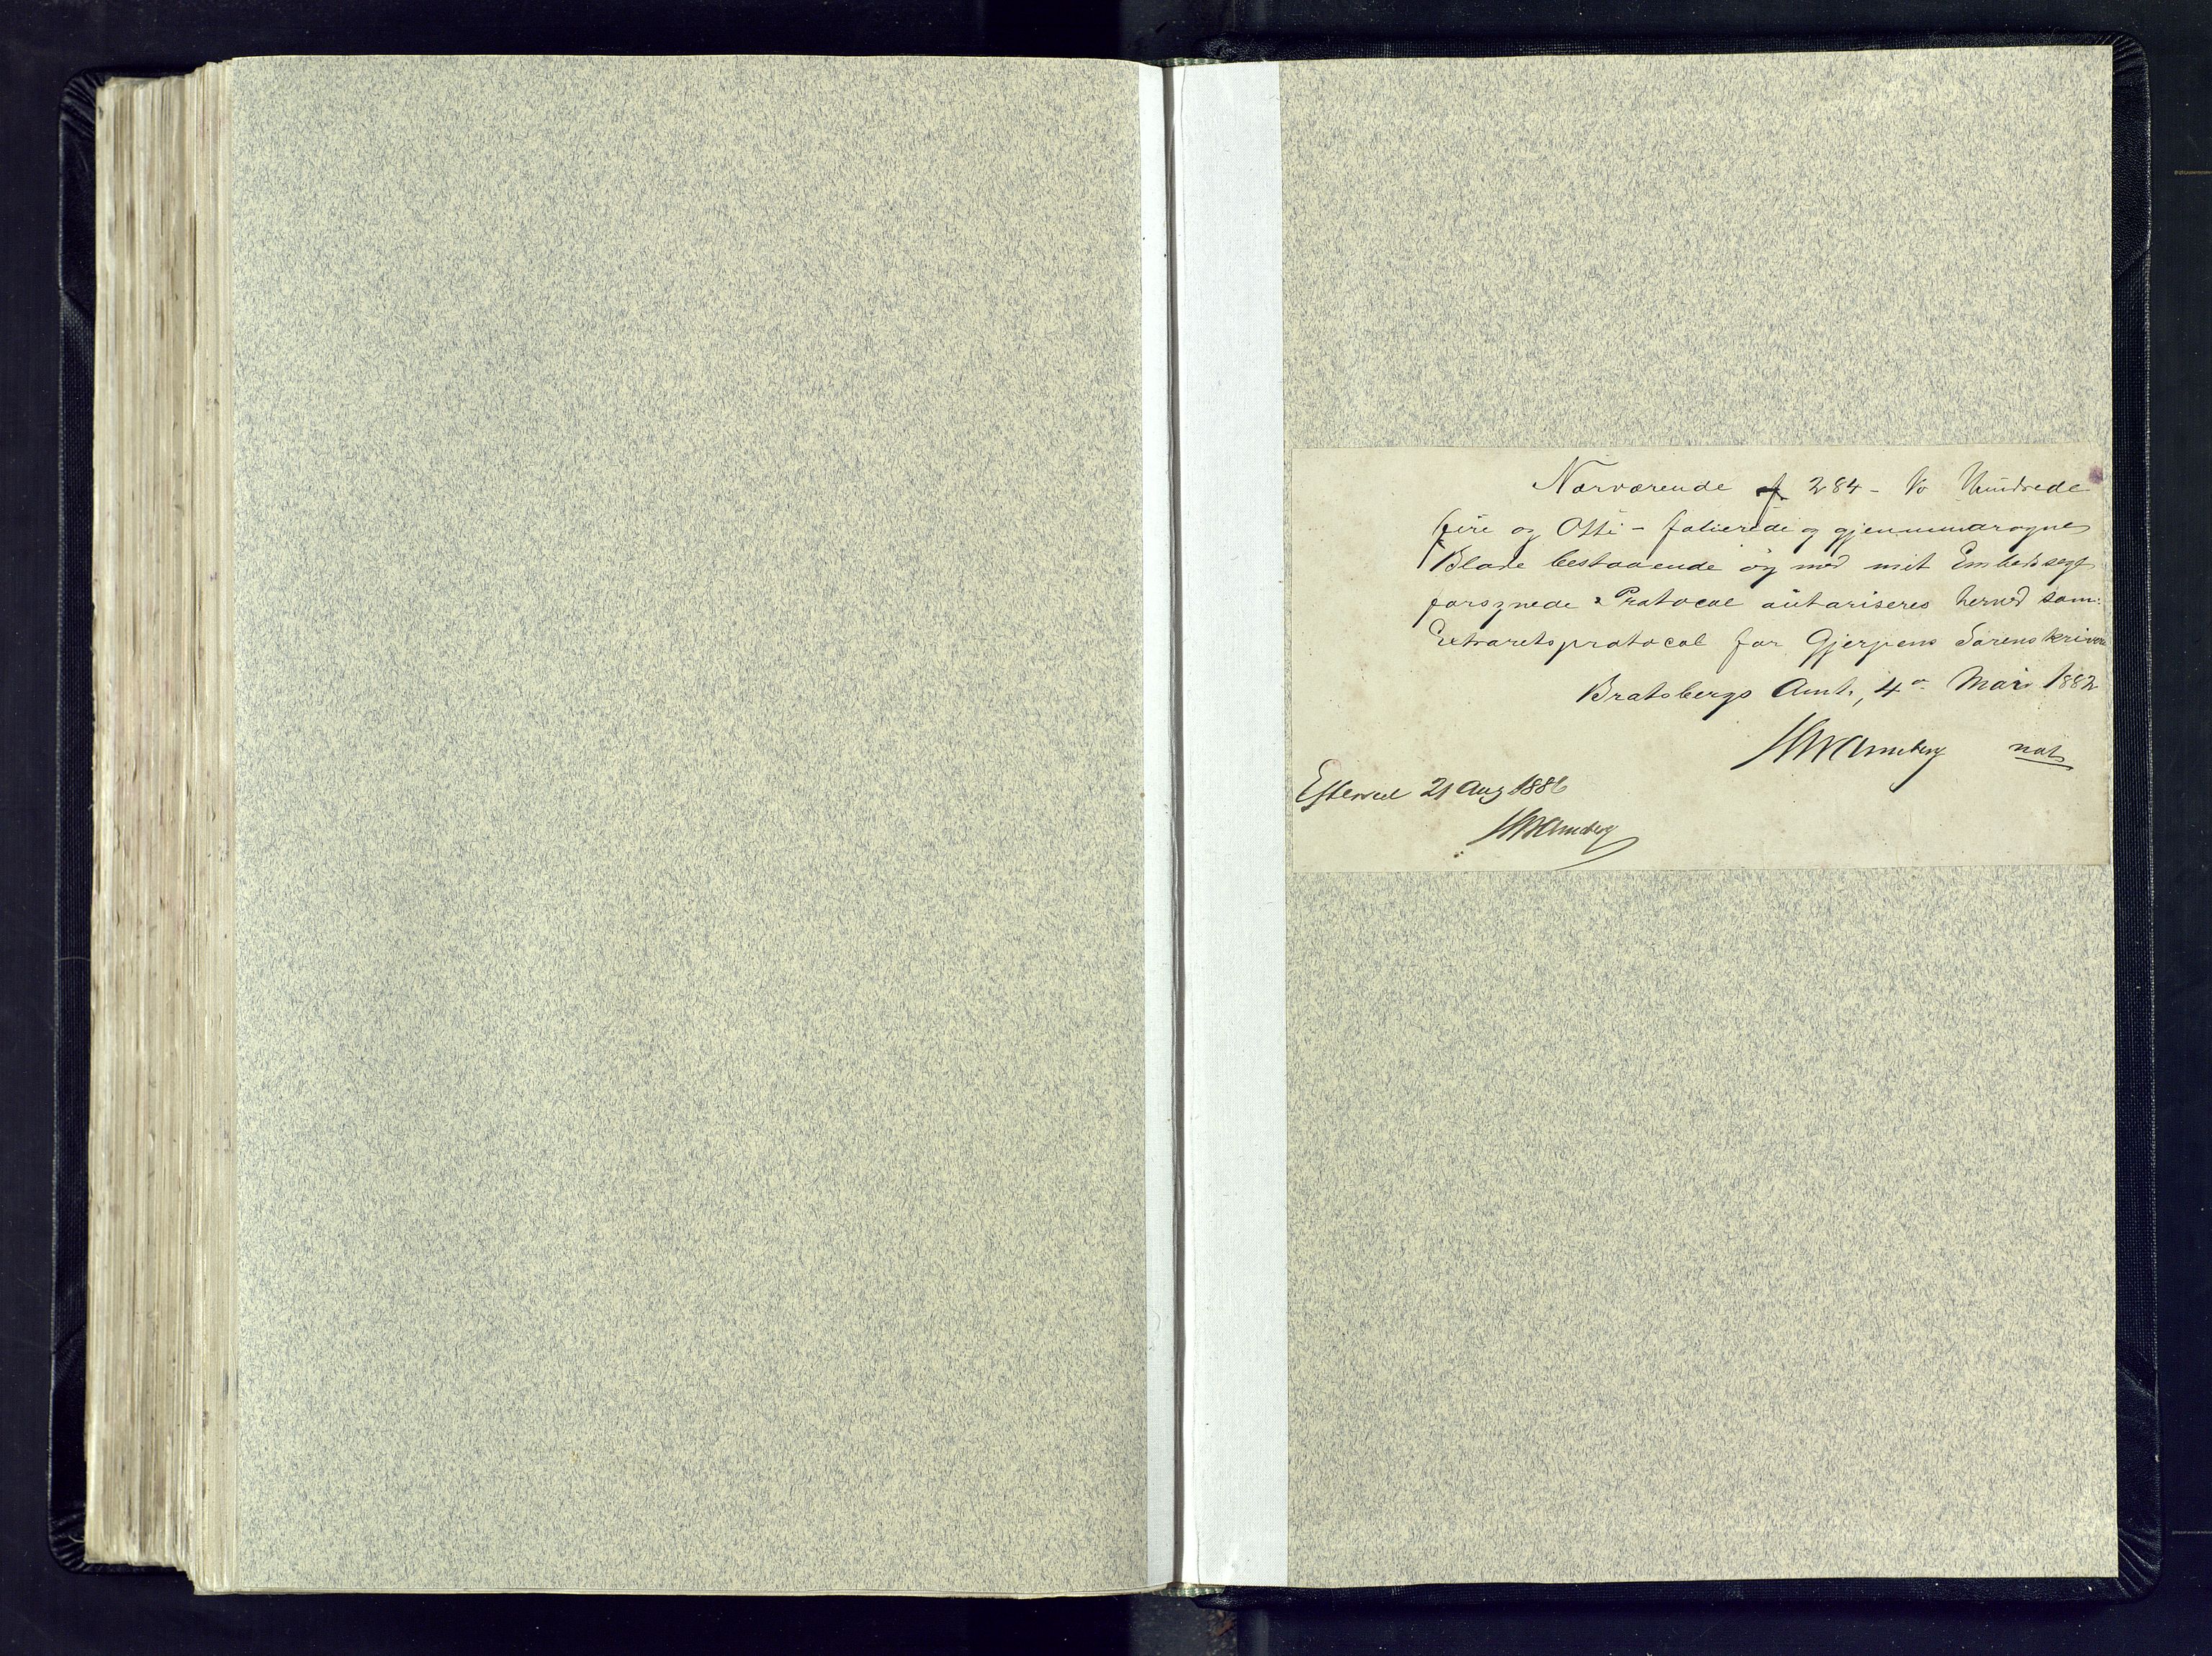 Nærværende af 284 - To Hundrede
fire og Otti - folierede og gjennemdragne
Blade bestaaende og med mit Embedssegl
forsynede Protocol autoriseres herved som
Extraretsprotocol for Gjerpens Sorenskriveri
Bratsbergs Amt, 4de Mai 1882
H. W. Anneberg
Efterseet 21 Aug 1886